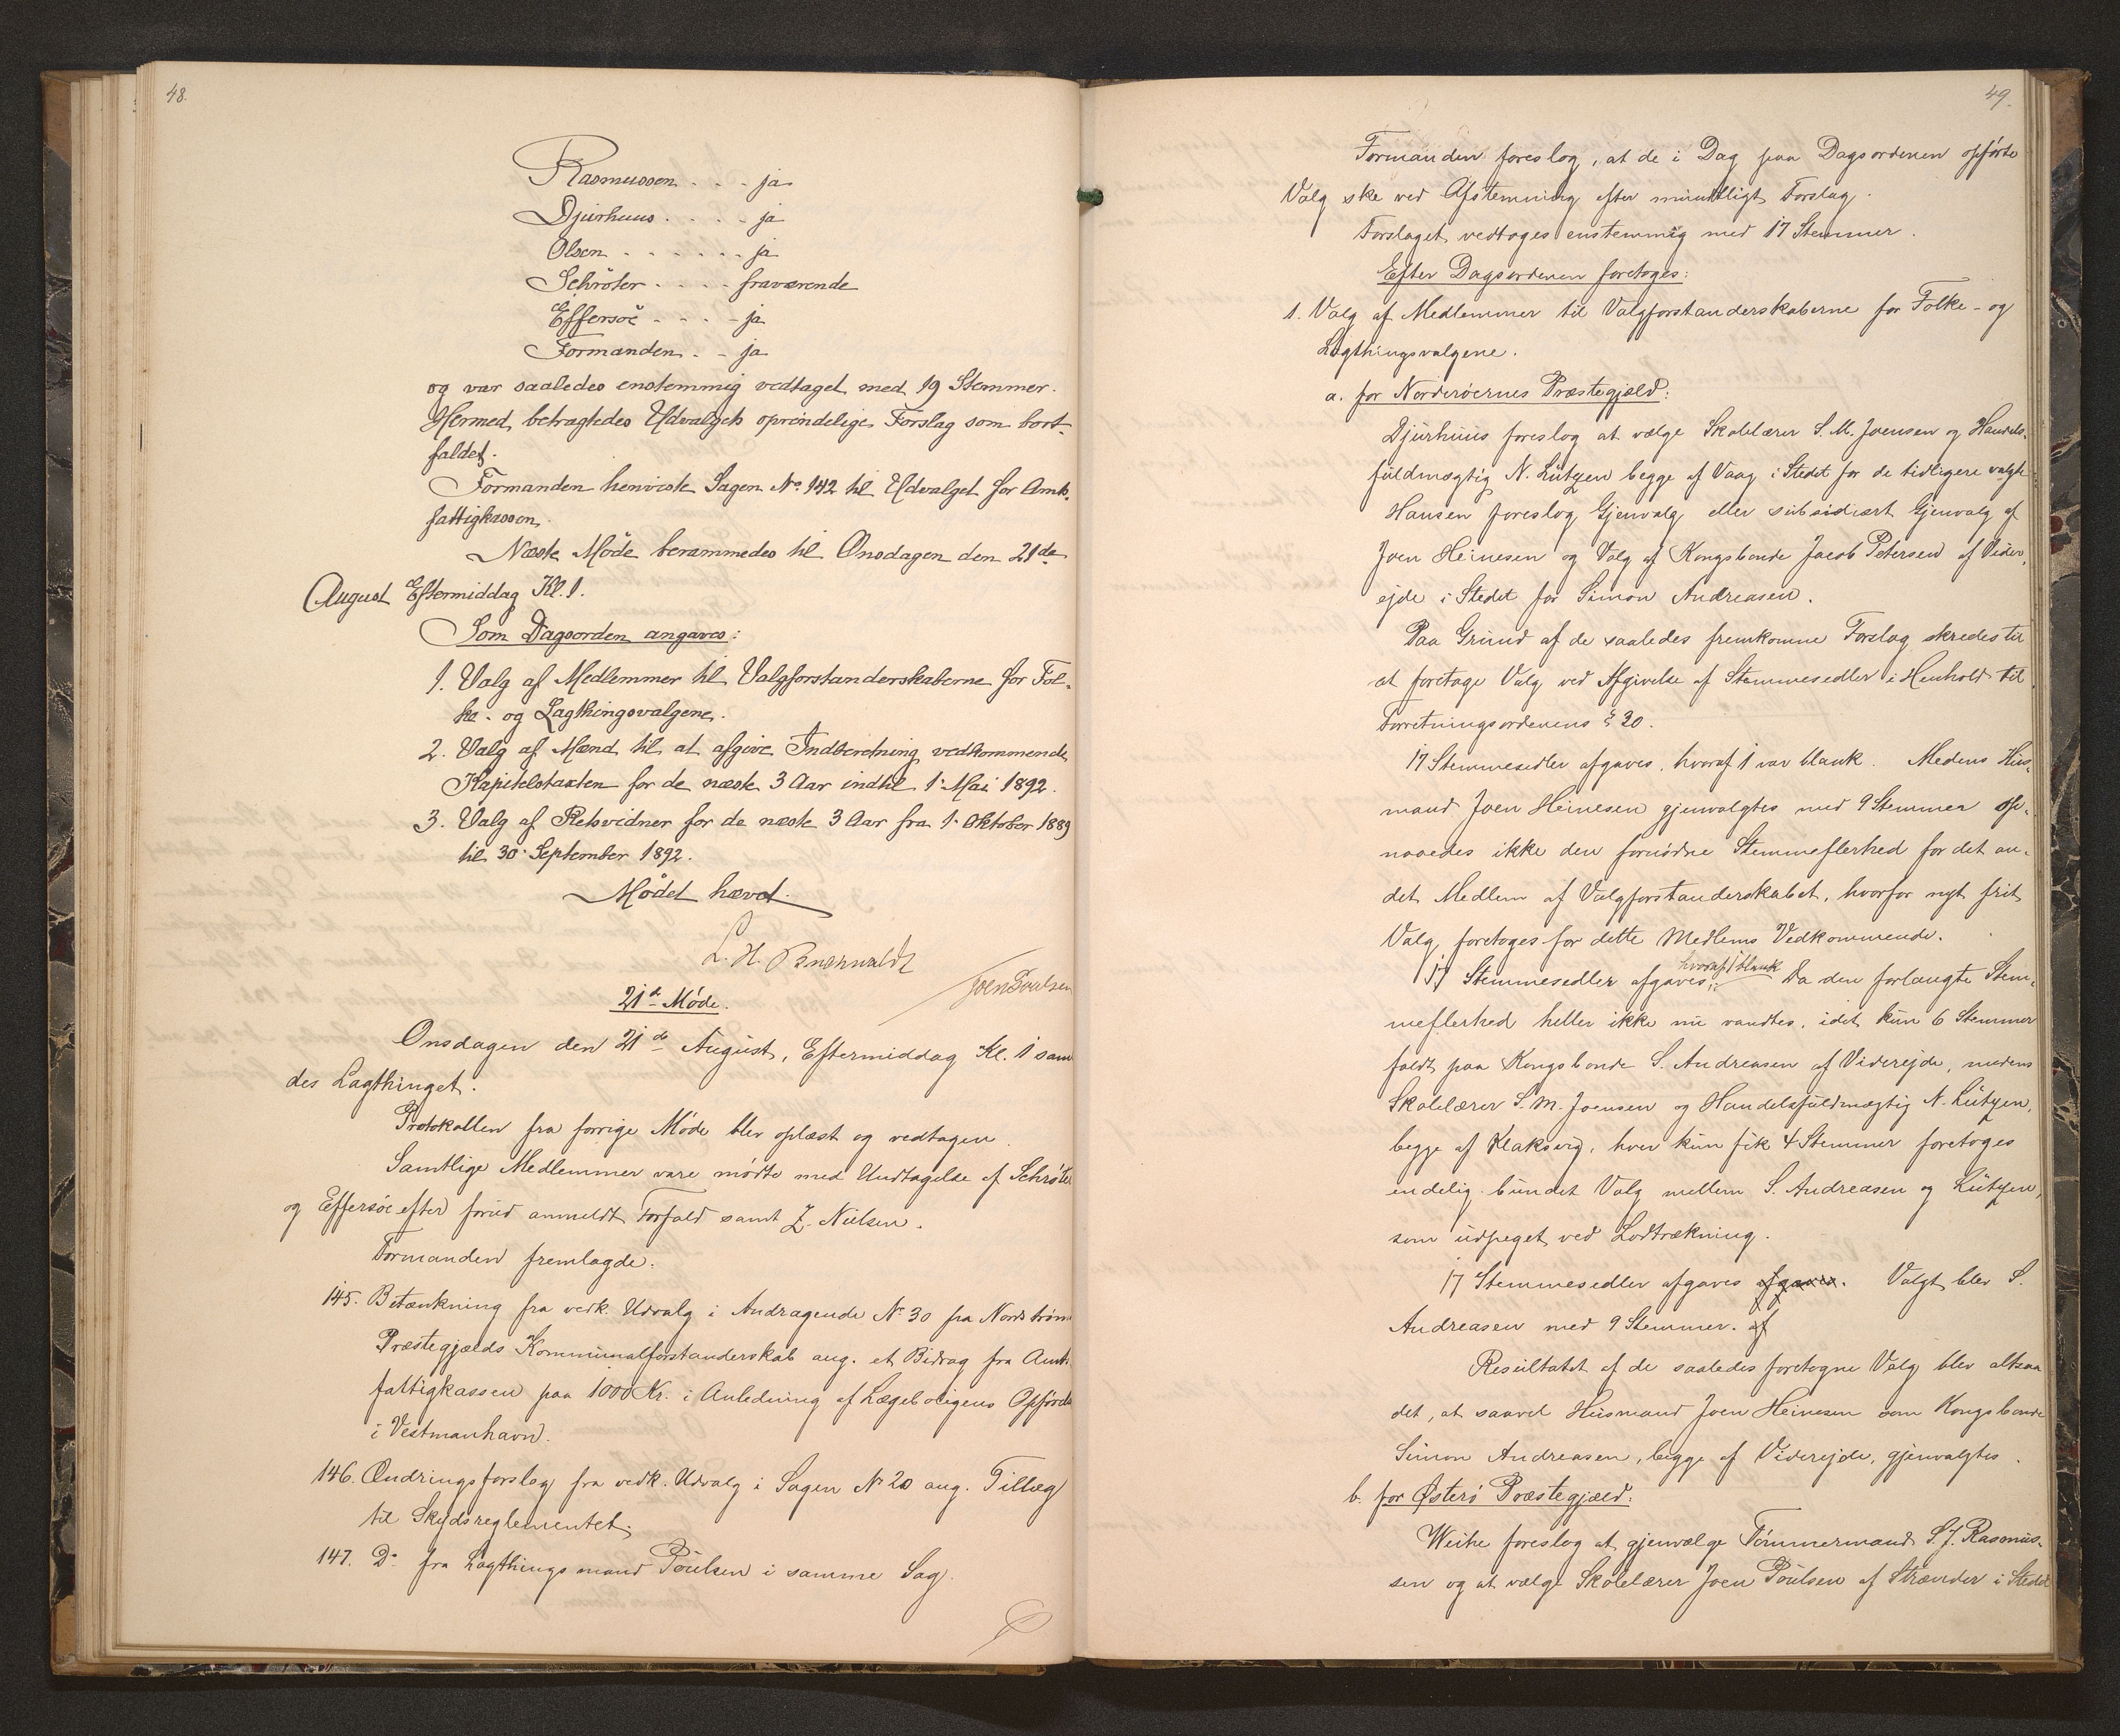 48.
Rasmussen . . - ja
Djurhuus . . . - ja
Olsen . . . . . . ja
Schröter . . . - fraværende
Effersöe - . . - ja
Formanden . - ja
og var saaledes enstemmig vedtaget med 19 Stemmer.
Hermed betragtedes Udvalgets oprindelige Forslag som bort-
faldet.
Formanden henviste Sagen No. 142 til Udvalget for Amts-
fattigkassen.
Næste Möde berammedes til Onsdagen den 21de
August Eftermiddag Kl. 1.
Som Dagsorden angaves:
1. Valg af Medlemmer til Valgforstanderskaberne for Fol-
ke- og Lagthingsvalgene.
2. Valg af Mænd til at afgive Indberetning vedkommende
Kapitelstaxten for de næste 3 Aar indtil 1. Mai 1892.
3. Valg af Retsvidner for de næste 3 Aar fra 1. Oktober 1889
til 30. September 1892.
Mödet hævet.
L. H.
Joen Poulsen
21de Möde.
Onsdagen den 21de August, Eftermiddag Kl. 1 sam
des Lagthinget.
Protokollen fra forrige Möde blev oplæst og vedtagen.
Samtlige Medlemmer vare mödte med Undtagelse af Schröter
og Effersöe efter forud anmeldt Forfald samt Z. Nielsen.
Formanden fremlagde:
145. Betænkning fra vedk. Udvalg i Andragende No 30 fra Nordströmö
Præstegjælds Kommunalforstanderskab ang. et Bidrag fra Amts
fattigkassen paa 1000 Kr. i Anledning af Lægeboligens Opförelse
i Vestmanhavn.
146. Ændringsforslag fra vedk. Udvalg i Sagen No 20 ang. Tillæg
til Skydsreglementet.
147. Do fra Lagthingsmand Poulsen i samme Sag.
49.
Formanden foreslog, at de i Dag paa Dagsordenen opförte
Valg ske ved Afstemning efter mundtligt Forslag.
Forslaget vedtoges enstemmig med 17 Stemmer.
Efter Dagsordenen foretoges:
1. Valg af Medlemmer til Valgforstanderskaberne for Folke- og
Lagthingsvalgene.
a. for Norderöernes Præstegjæld:
Djurhuus foreslog at vælge Skolelærer S. M. Joensen og Handels-
fuldmægtig N. Lützen begge af Vaag i Stedet for de tidligere valgte
Hansen foreslog Gjenvalg eller subsidiært Gjenvalg af
Joen Heinesen og Valg af Kongsbonde Jacob Petersen af Vider-
ejde i Stedet for Simon Andreasen.
Paa Grund af de saaledes fremkomne Forslag skredes til
at foretage Valg ved Afgivelse af Stemmesedler i Henhold til
Forretningsordenens § 30.
17 Stemmesedler afgaves, hvoraf 1 var blank. Medens Hus-
mand Joen Heinesen gjenvalgtes med 9 Stemmer op-
naaedes ikke den fornödne Stemmeflerhed for det an-
det Medlem af Valgforstanderskabet, hvorfor nyt frit
Valg foretoges for dette Medlems Vedkommende.
hvoraf 1 blank
17 Stemmesedler afgaves. Da den forlangte Stem-
meflerhed heller ikke nu vandtes, idet kun 6 Stemmer
faldt paa Kongsbonde S. Andreasen af Viderejde, medens
Skolelærer S. M. Joensen og Handelsfuldmægtig N. Lützen,
begge af Klaksvig, hver kun fik 4 Stemmer foretoges
endelig bundet Valg mellem S. Andreasen og Lützen,
som udpeget ved Lodtrækning.
17 Stemmesedler afgaves afgaves. Valgt blev S.
Andreasen med 9 Stemmer. af
Resultatet af de saaledes foretagne Valg blev altsaa
det, at saavel Husmand Joen Heinesen som Kongsbonde
Simon Andreasen, begge af Viderejde, gjenvalgtes.
b. for Österö Præstegjæld:
Weihe foreslog at gjenvælge Tömmermand S. J. Rasmus-
sen og at vælge Skolelærer Joen Poulsen af Strænder i Stedet